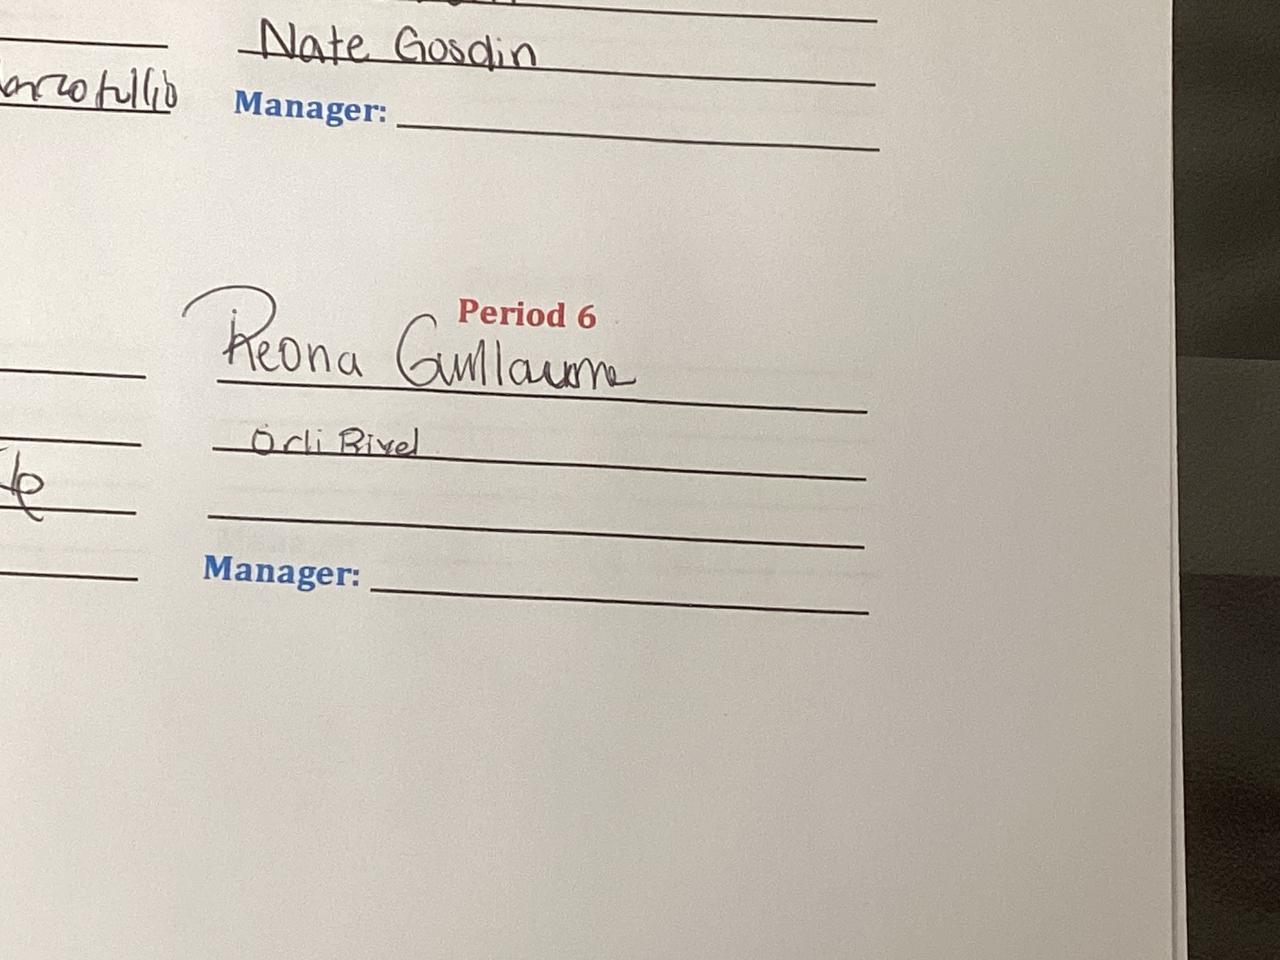 Nate Gosdin
arcotullio
Manager:
Period 6
Reona Guillaume
Orli Rivel
Manager: